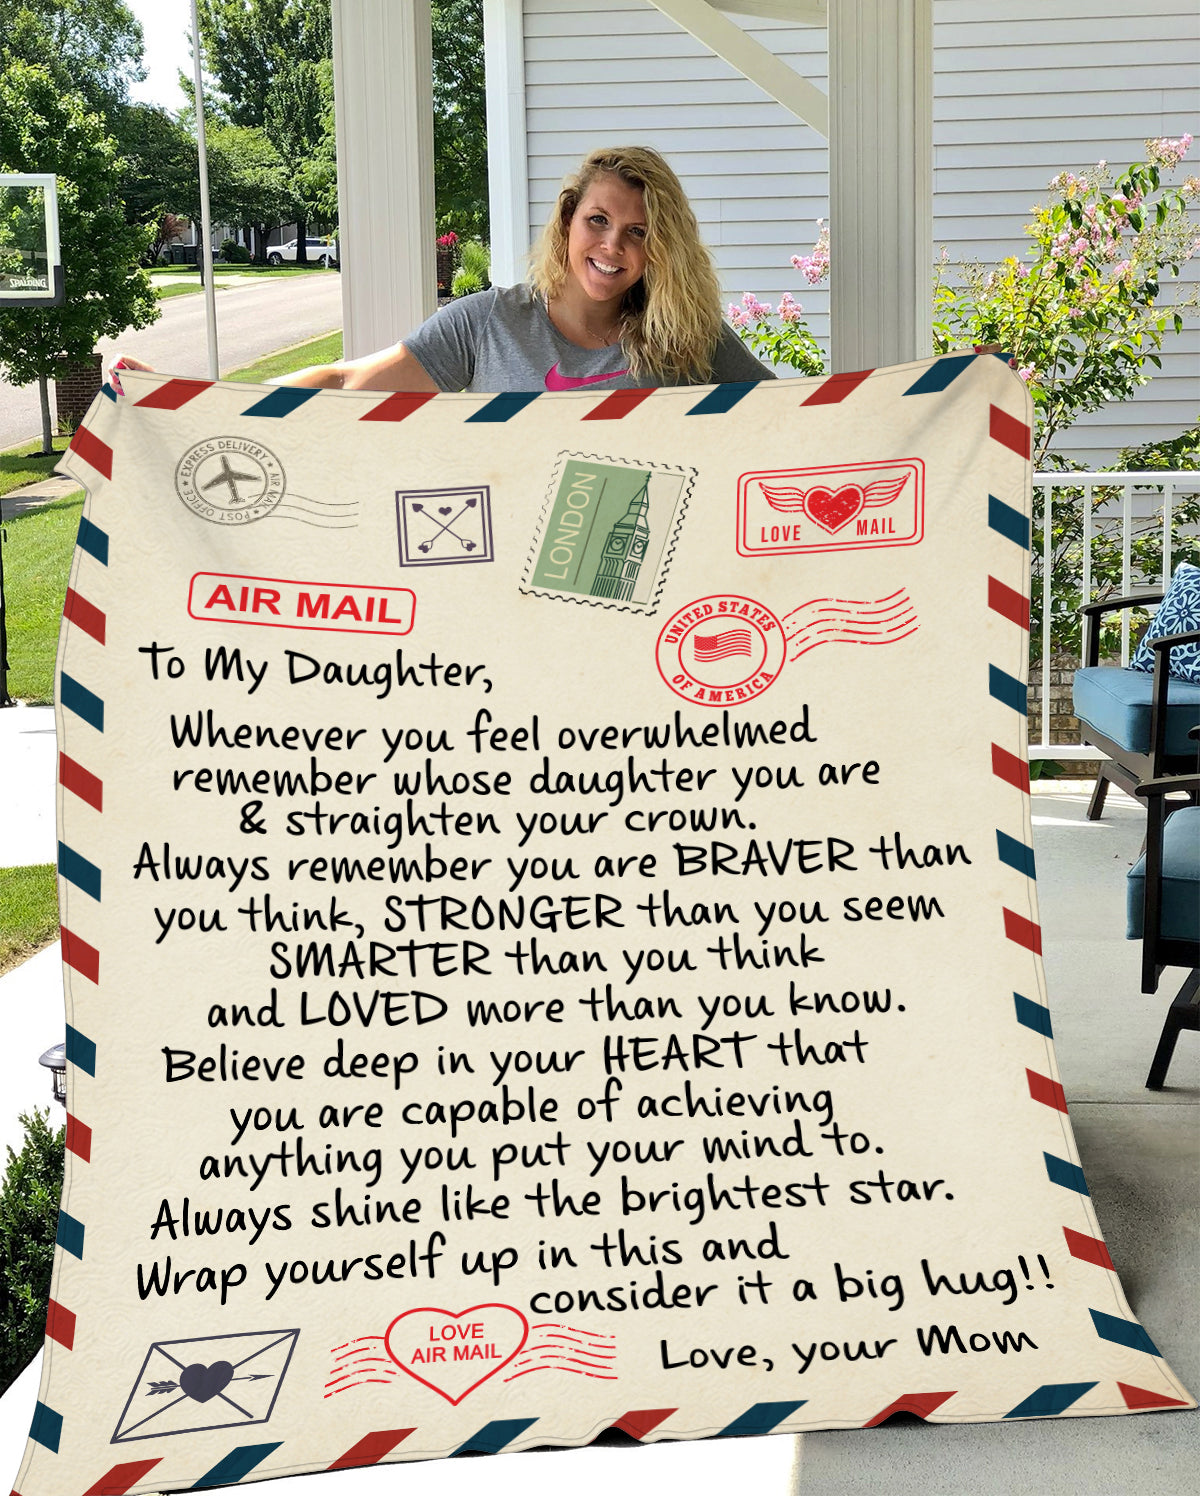 SPALDING
EXPRESS DELIVERY ★ AIR MAIL ★ POST OFFICE ★
LONDON
LOVE MAIL
AIR MAIL
UNITED STATES
OF AMERICA
To My Daughter,
Whenever you feel overwhelmed
remember whose daughter you are
& straighten your crown.
Always remember you are BRAVER than
you think, STRONGER than you seem
SMARTER than you think
and LOVED more than you know.
Believe deep in your HEART that
you are capable of achieving
anything you put your mind to.
Always shine like the brightest star.
Wrap yourself up in this and
consider it a big hug!!
Love, your Mom
LOVE
AIR MAIL